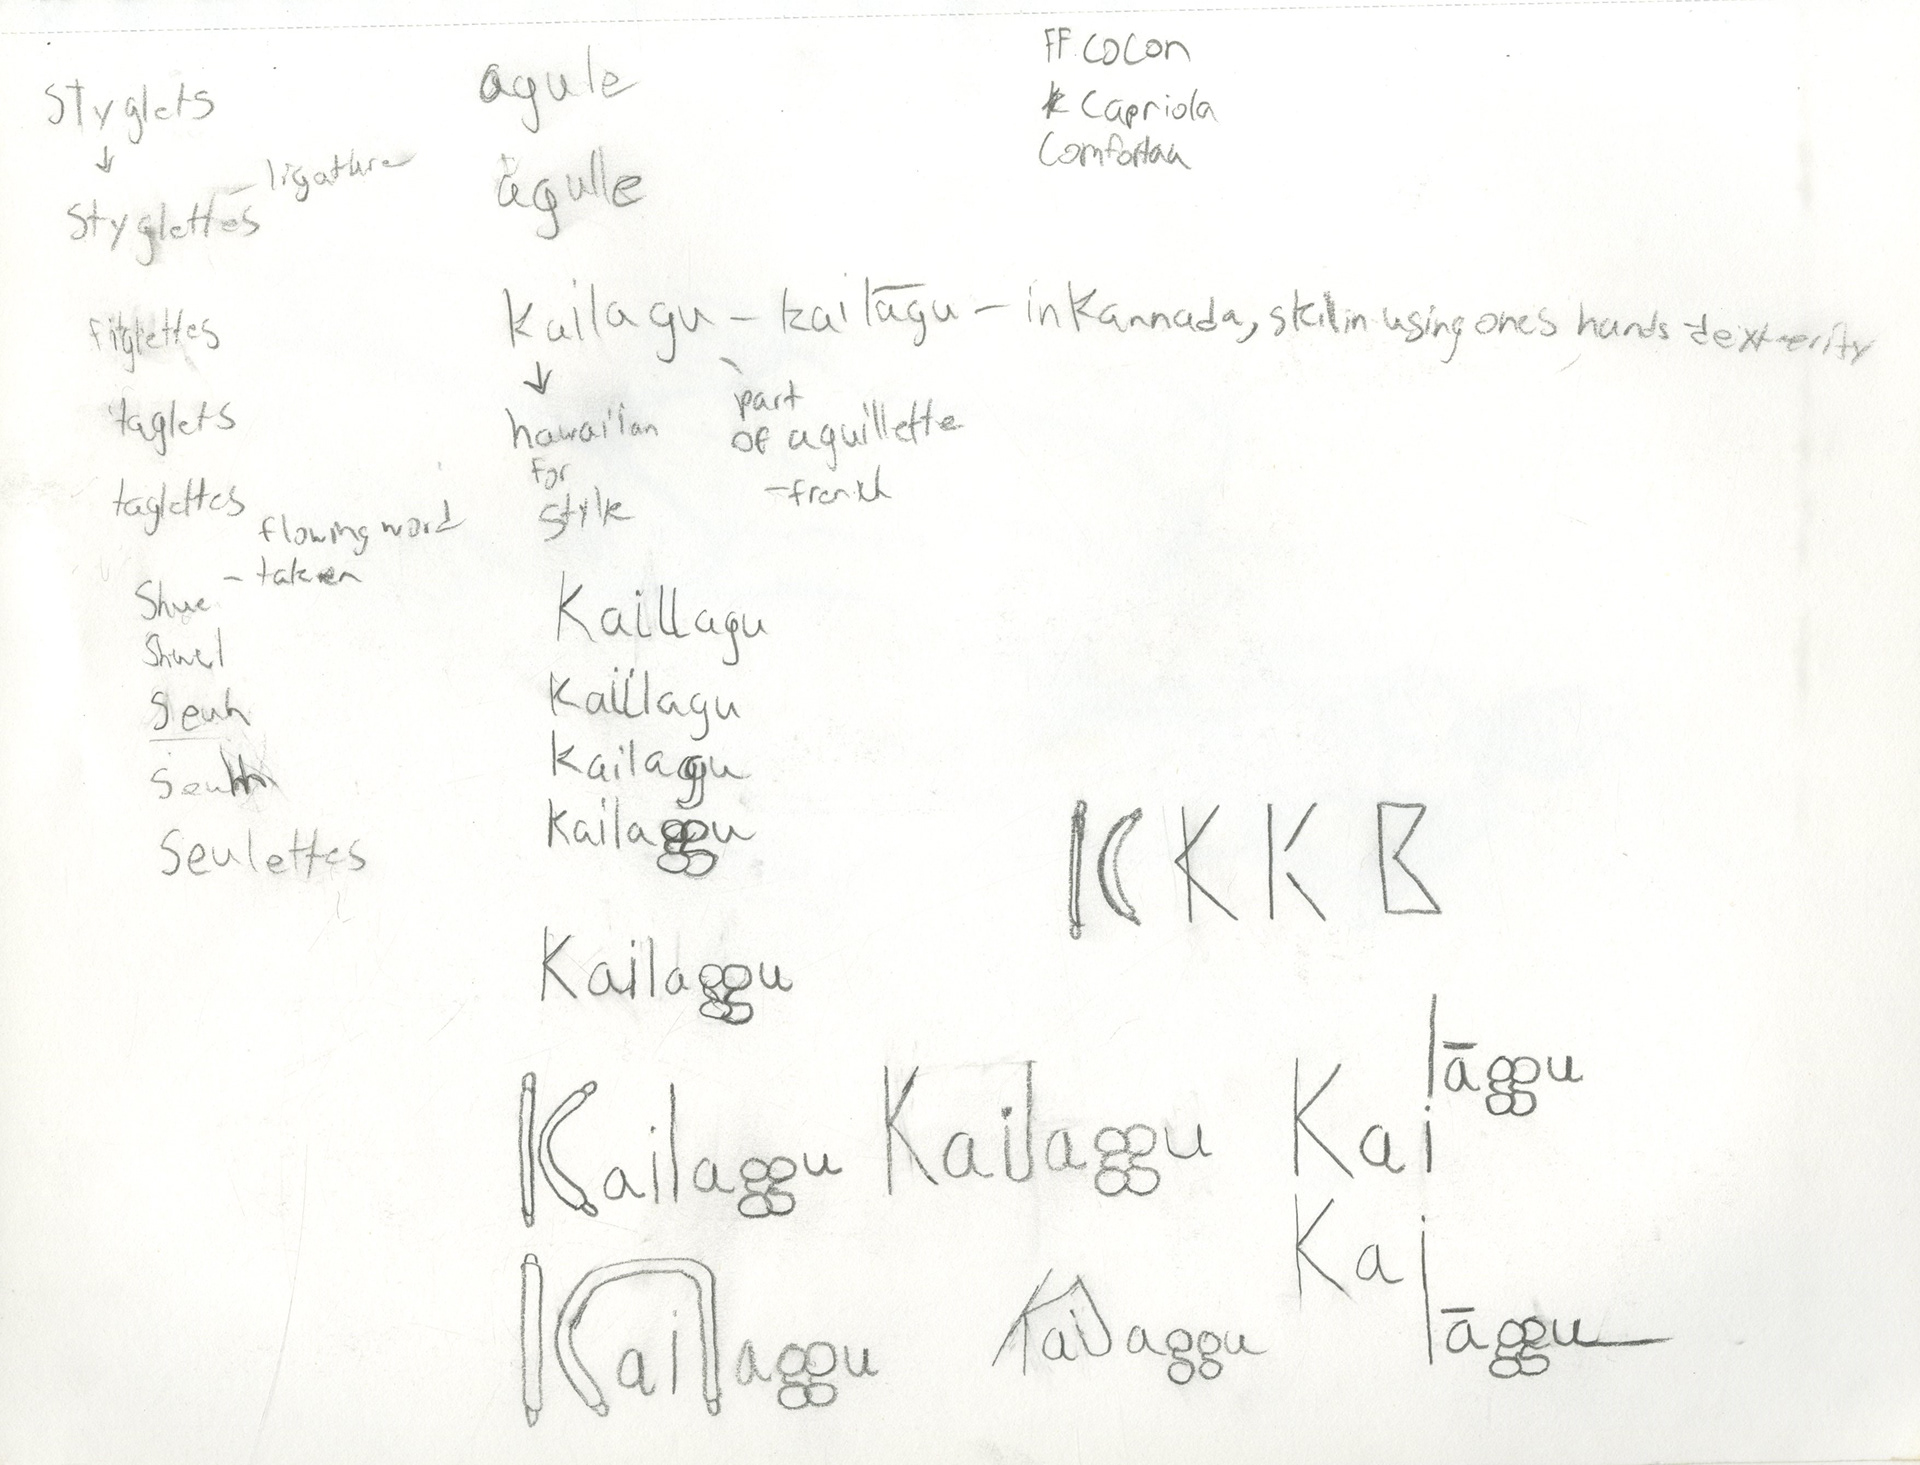 Styglets
↓
Styglettes – ligature
Fitglettes
taglets
taglettes
flowing word
– taken
Shue
Shuel
Seuh
Seuhh
Seulettes
agule
āgulle
Kailagu – kailāgu – in Kannada, skil in using ones hands dexterity
↓
hawaiian
for
style
part
of aguillette
– french
Kaillagu
Kaillagu
Kailaggu
Kailaggu
Kailaggu
Kailaggu
Kailaggu
Kailaggu
Kailaggu
FF Cocon
Capriola
Comfortaa
K K K K
Kailāggu
Kailāggu